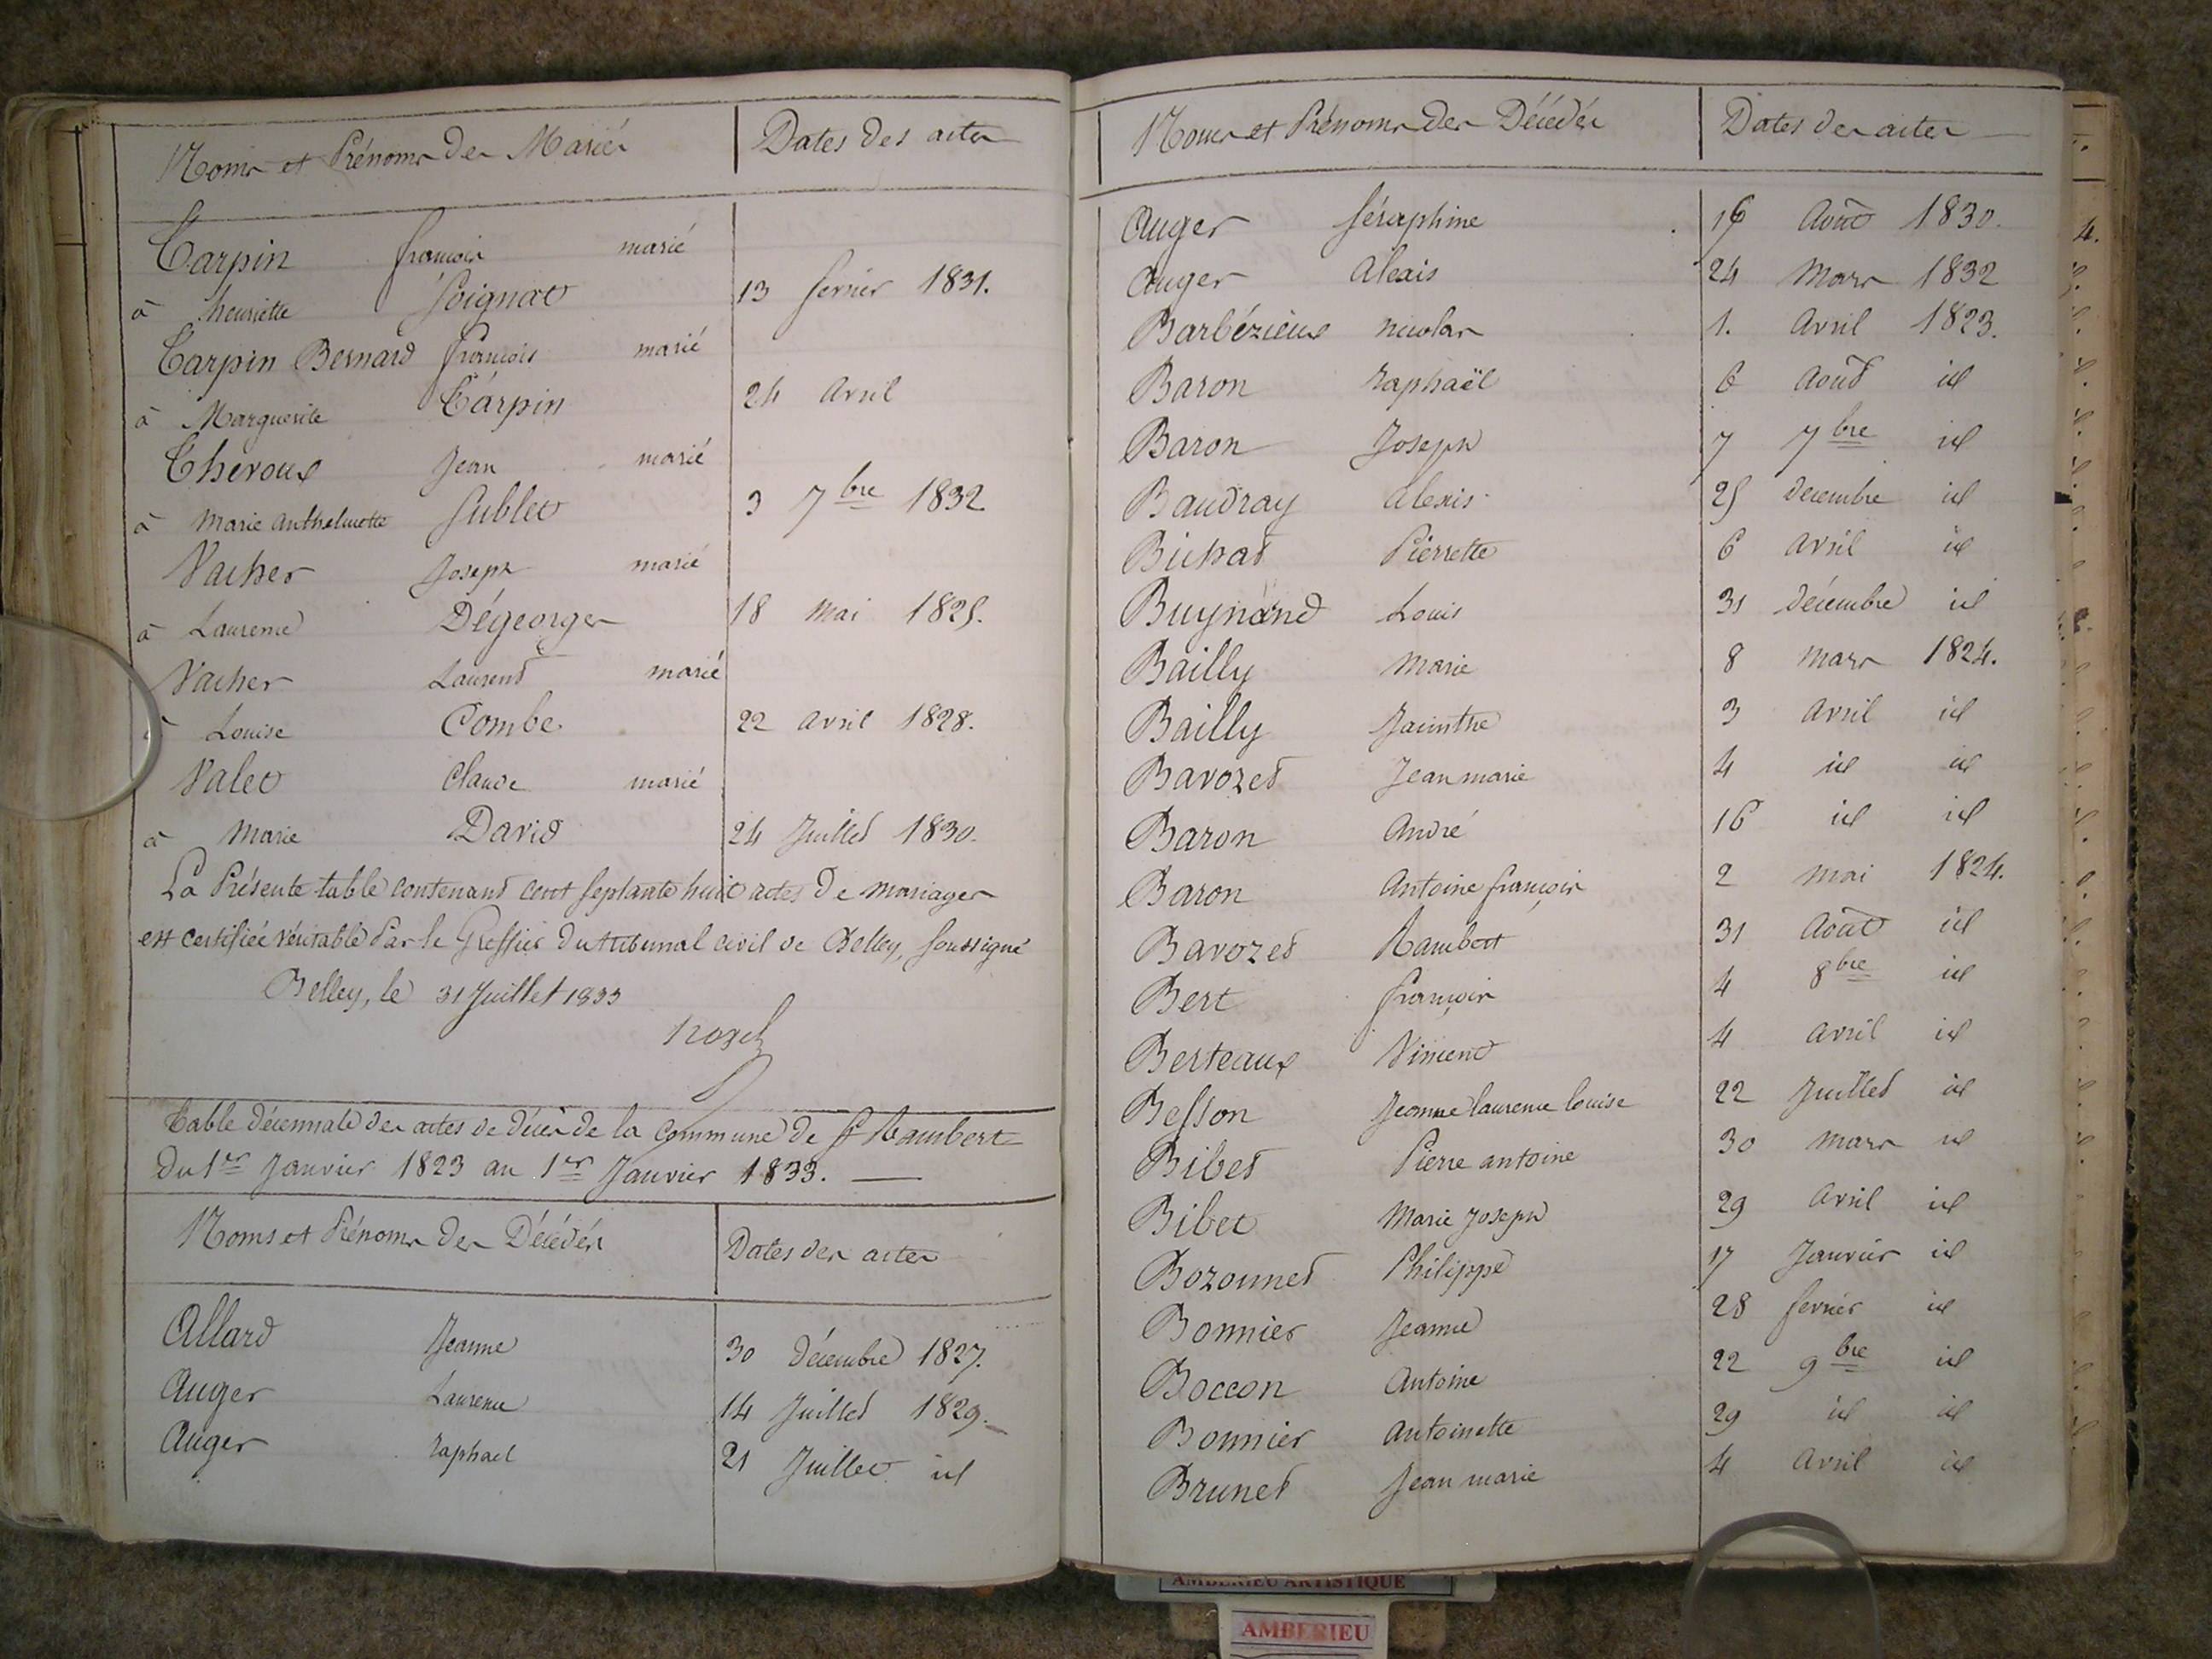 Noms et Prénoms des Mariés Dates des actes
Tarpin françois marié
à henriette Soignat 13 fevrier 1831.
Tarpin Bernard françois marié
à Marguerite Tarpin 24 avril
Theroux Jean marié
à Marie Anthelmette Sublet 3 7bre 1832
Vacher Joseph marié
à Laurence Dégeorges 18 Mai 1825.
Vacher Laurent marié
à Louise Combe 22 avril 1828.
Valet Claude marié
à Marie David 24 Juillet 1830.
La Présente table contenant cent septante huit actes de mariages
est certifiée véritable Par le Greffier du tribunal civil de Belley, soussigné
Belley, le 31 Juillet 1833
Table décennale des actes de décès de la Commune de St Rambert
Du 1er Janvier 1823 au 1er Janvier 1833.
Noms et Prénoms des Décédés Dates des actes
Allard Jeanne 30 décembre 1827.
Auger Laurence 14 Juillet 1829.
Auger raphael 21 Juillet id
Noms et Prénoms des Décédés Dates des actes
Auger Séraphine 16 Août 1830.
Auger Alexis 24 Mars 1832
Barbézieux nicolas 1. Avril 1823.
Baron raphaël 6 Août id
Baron Joseph 7 7bre id
Baudray alexis 25 decembre id
Bichat Pierrette 6 avril id
Buynand Louis 31 décembre id
Bailly Marie 8 Mars 1824.
Bailly Jacinthe 3 avril id
Bavozet Jean marie 4 id id
Baron André 16 id id
Baron Antoine françois 2 mai 1824.
Bavozet Rambert 31 Août id
Bert françois 4 8bre id
Berteaux Vincent 4 avril id
Besson Jeanne laurence louise 22 Juillet id
Bibet Pierre antoine 30 mars id
Bibet Marie Joseph 29 avril id
Bozonnet Philippe 17 Janvier id
Bonnier Jeanne 28 fevrier id
Boccon Antoine 22 9bre id
Bonnier Antoinette 29 id id
Brunet Jean marie 4 Avril id
AMBERIEU ARTISTIQUE
AMBERIEU